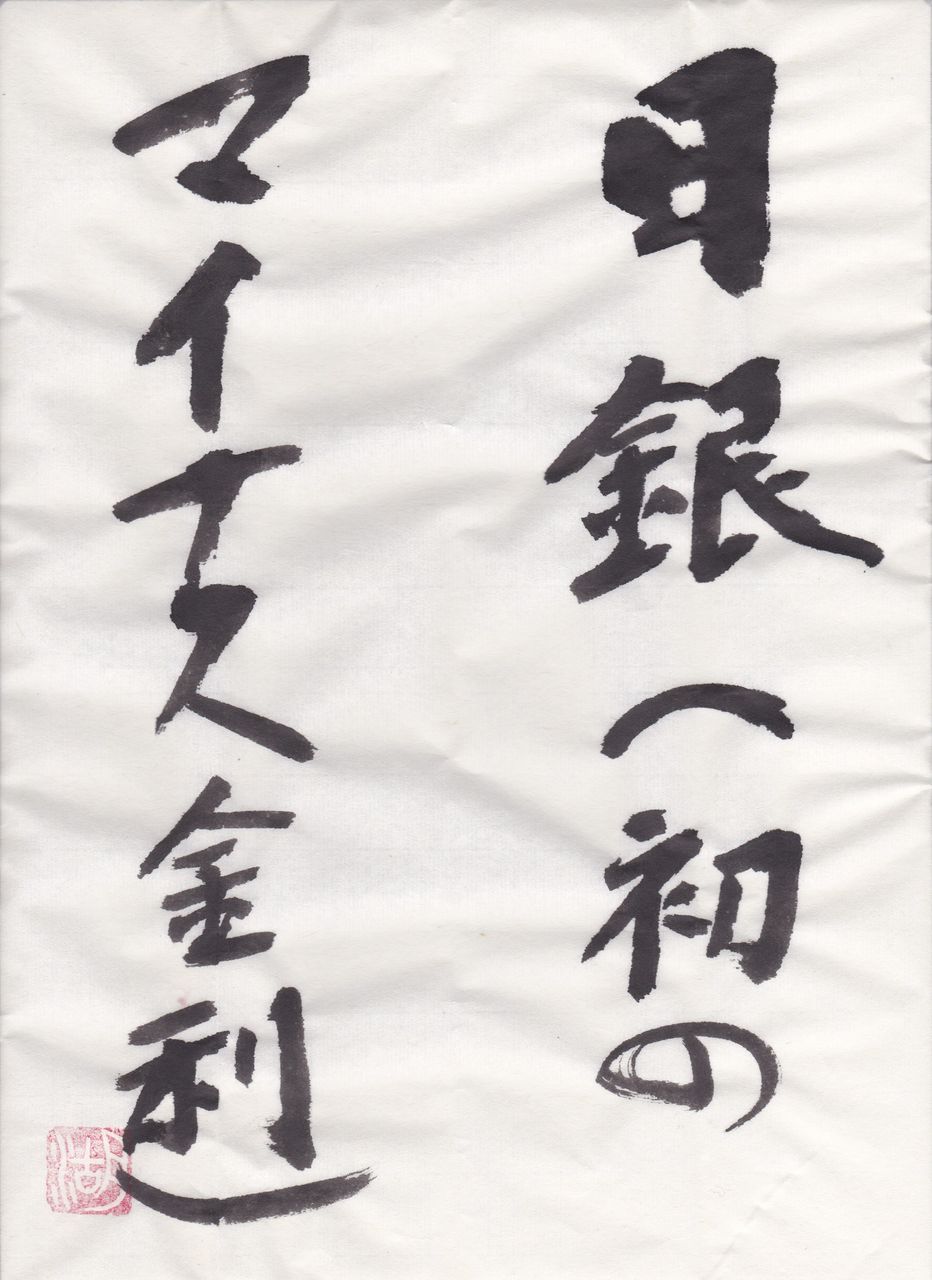 日銀（初の
マイナス金利）